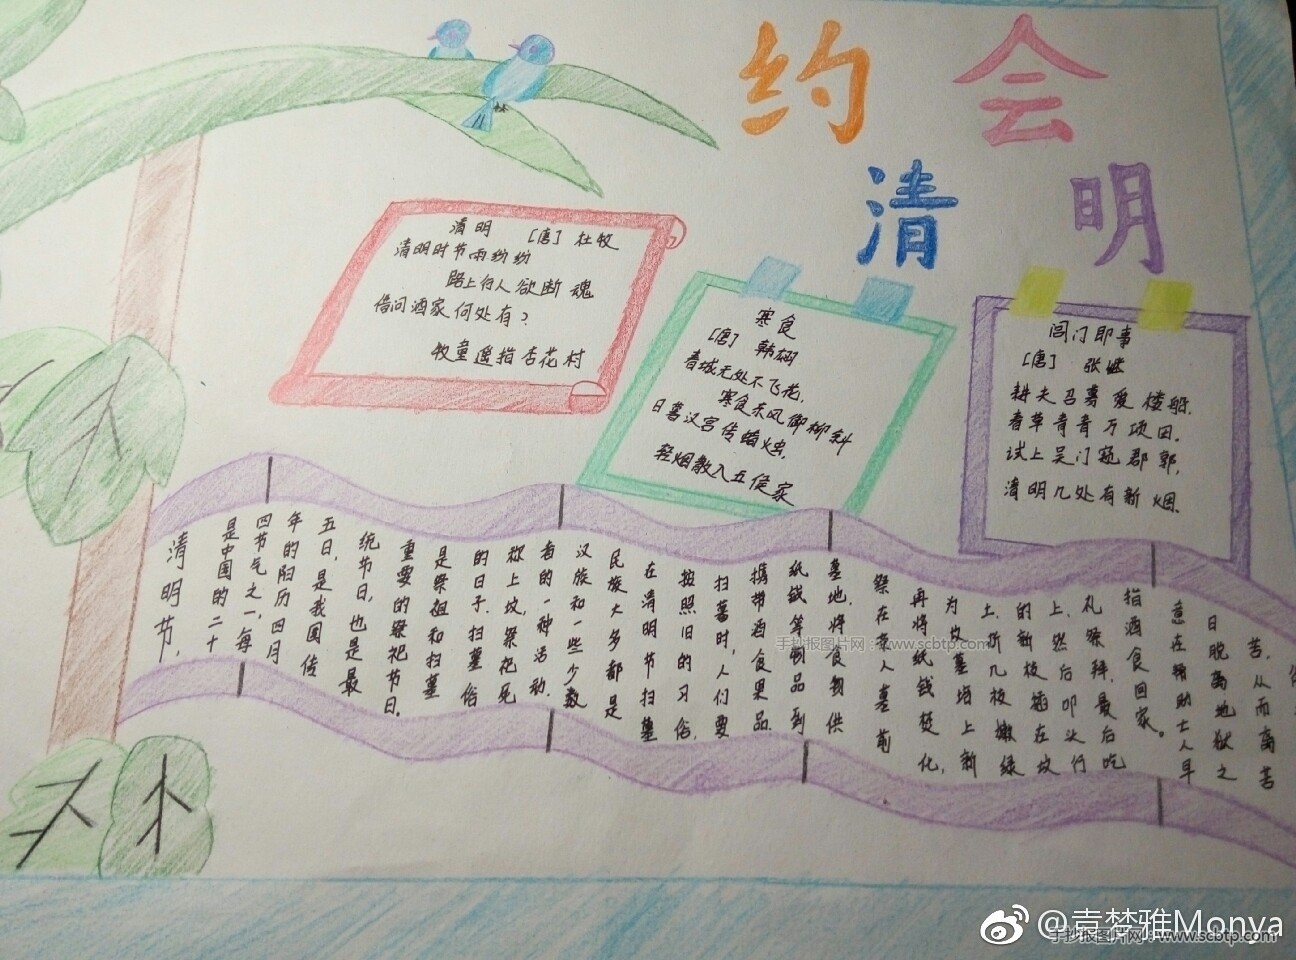 约会
清明
清明 [唐] 杜牧
清明时节雨纷纷
路上行人欲断魂
借问酒家何处有?
牧童遥指杏花村
寒食
[唐] 韩翃
春城无处不飞花,
寒食东风御柳斜
日暮汉宫传蜡烛,
轻烟散入五侯家
阊门即事
[唐] 张继
耕夫召募爱楼船,
春草青青万项田,
试上吴门窥郡郭,
清明几处有新烟.
清明节,
是中国的二十
四节气之一,每
年的阳历四月
五日,是我国传
统节日,也是最
重要的祭祀节日,
是祭祖和扫墓
的日子.扫墓俗
称上坟,祭祀死
者的一种活动.
汉族和一些少数
民族大多都是
在清明节扫墓
按照旧的习俗,
扫墓时,人们要
携带酒食果品
纸钱等物品到
墓地,将食物供
祭在亲人墓前
再将纸钱焚化,
为坟墓培上新
土,折几枝嫩绿
的新枝插在坟
上,然后叩头行
礼祭拜,最后吃
指酒食回家。
意在帮助士人早
日脱离地狱之
苦,从而离苦
手抄报图片网:www.scbtp.com
@袁梦雅Monya
手抄报图片网:www.scbtp.com